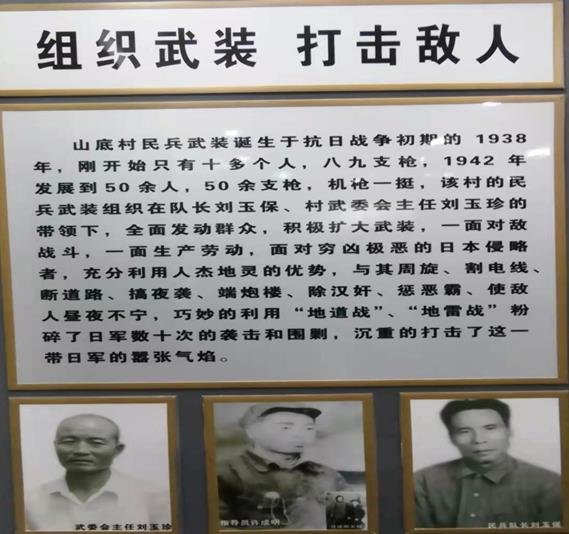 组织武装 打击敌人
山底村民兵武装诞生于抗日战争初期的 1938
年，刚开始只有十多个人，八九支枪，1942 年
发展到50余人，50余支枪，机枪一挺，该村的民
兵武装组织在队长刘玉保、村武委会主任刘玉珍的
带领下，全面发动群众，积极扩大武装，一面对敌
战斗，一面生产劳动，面对穷凶极恶的日本侵略
者，充分利用人杰地灵的优势，与其周旋、割电线、
断道路、搞夜袭、端炮楼、除汉奸、惩恶霸、使敌
人昼夜不宁，巧妙的利用“地道战”、“地雷战”粉
碎了日军数十次的袭击和围剿，沉重的打击了这一
带日军的嚣张气焰。
武委会主任刘玉珍
指导员许成明
民兵队长刘玉保